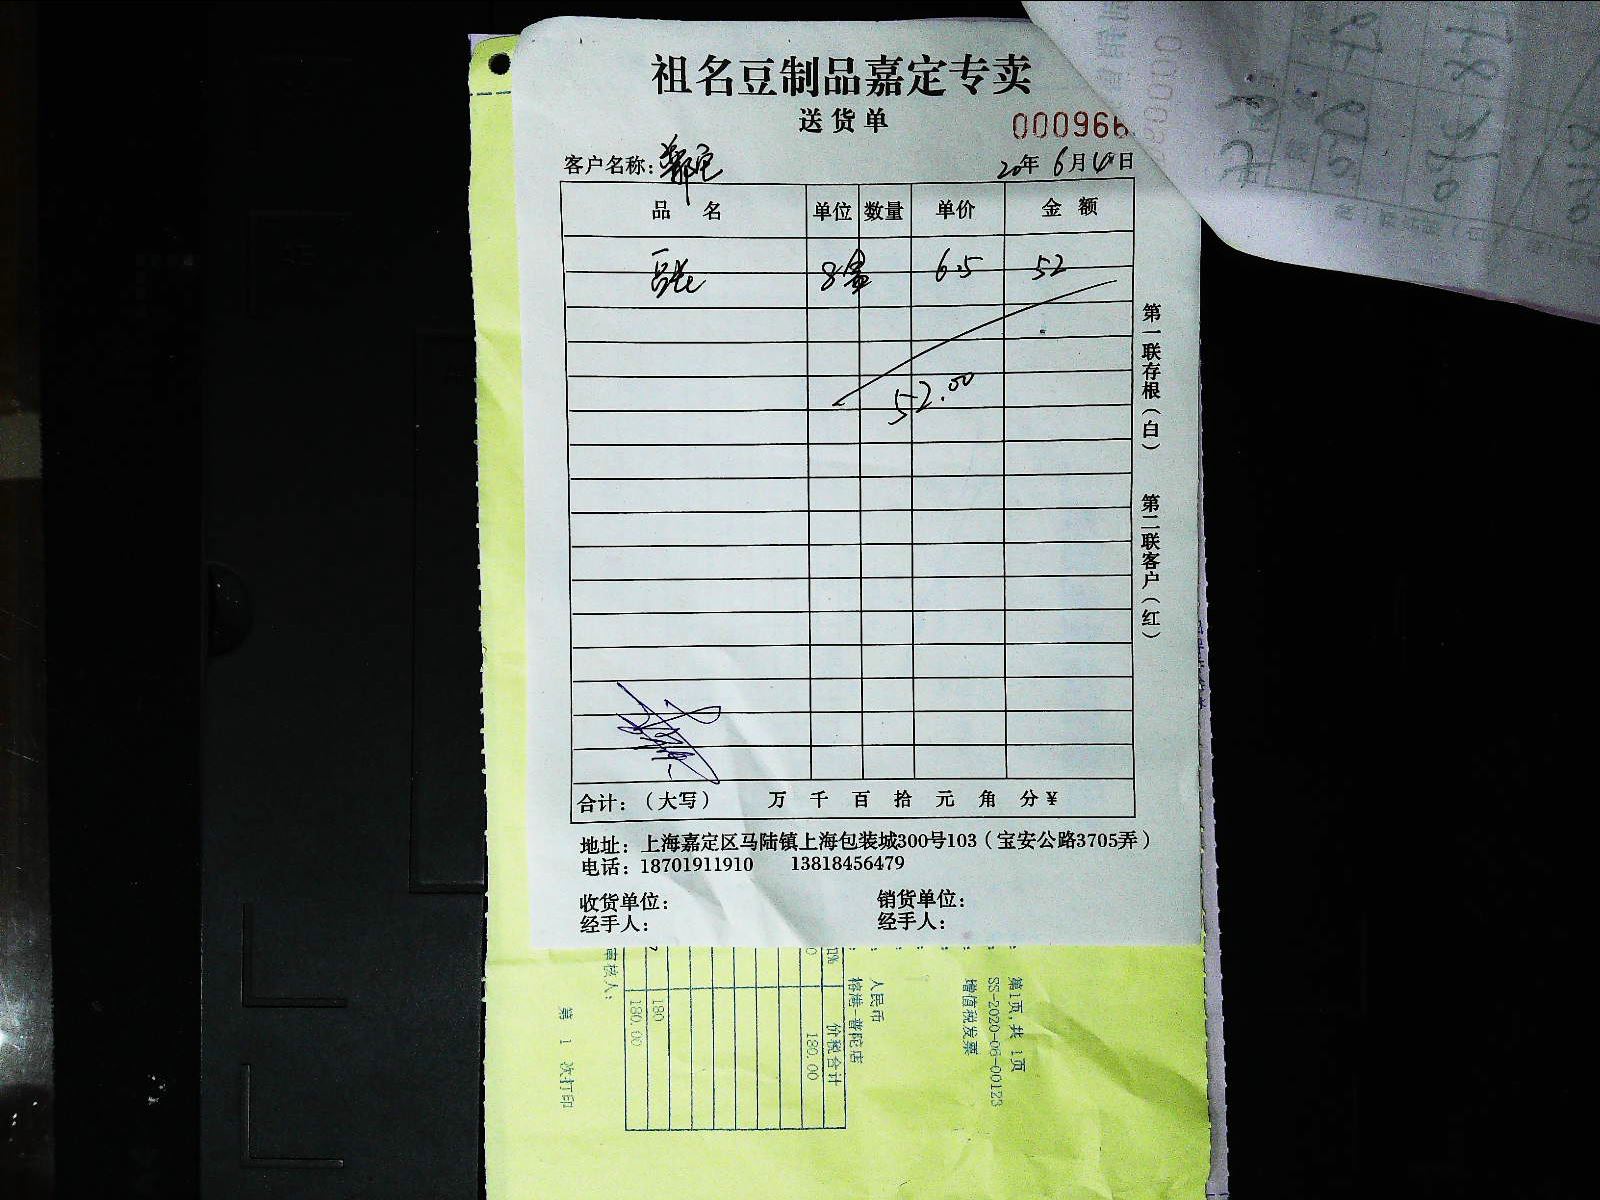 祖名豆制品嘉定专卖
送货单
000966
客户名称：
20年6月4日
品 名 单位 数量 单价 金 额
8盒 6.5 52
52.00
第一联存根（白） 第二联客户（红）
合计：（大写） 万 千 百 拾 元 角 分 ¥
地址：上海嘉定区马陆镇上海包装城300号103（宝安公路3705弄）
电话：18701911910 13818456479
收货单位： 销货单位：
经手人： 经手人：
第1页,共 1页
SS-2020-06-00123
增值税发票
人民币
榕港-普陀店
价税合计
180.00
180
180.00
审核人：
第 1 次打印